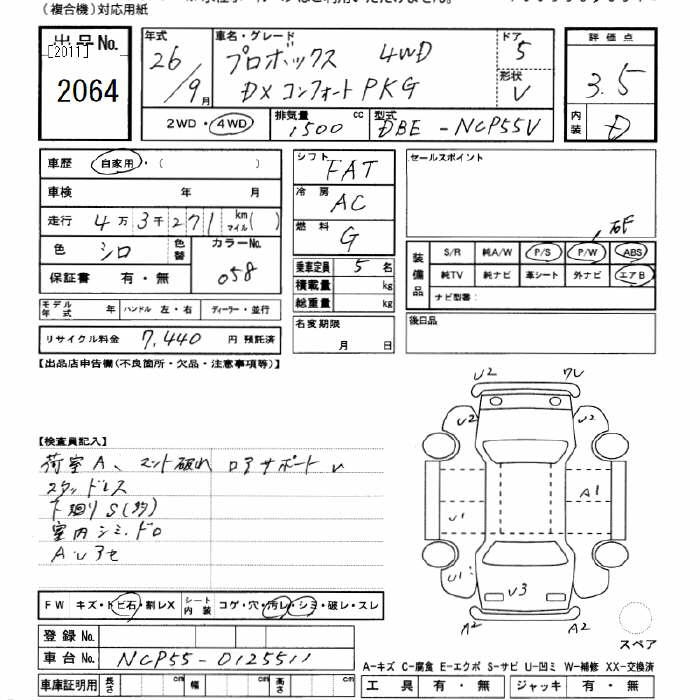 (複合機)対応用紙
出品No.
[2011]
2064
年式
26/9月
車名・グレード
プロボックス 4WD
DX コンフォートPKG
ドア
5
形状
V
2WD・4WD
排気量
1500 cc
型式
DBE-NCP55V
評価点
3.5
内装
D
車歴 自家用・( )
車検 年 月
走行 4万3千271 km マイル( )
色 シロ
色替
カラーNo.
058
保証書 有・無
モデル年式 年 ハンドル 左・右 ディーラー・並行
リサイクル料金 7,440 円 預託済
シフト FAT
冷房 AC
燃料 G
乗車定員 5 名
積載量 kg
総重量 kg
名変期限
月 日
セールスポイント
装備品
S/R 純A/W P/S P/W ABS
純TV 純ナビ 革シート 外ナビ エアB
ナビ型番:
後日品
【出品店申告欄(不良箇所・欠品・注意事項等)】
【検査員記入】
荷室A、マット破れ ロアサポートU
スタッドレス
下廻りS(多)
室内シミ、ドロ
FW キズ・トビ石・割レX シート内装 コゲ・穴・汚レ・シミ・破レ・スレ
登録No.
車台No. NCP55-0125511
車庫証明用 長さ cm 幅 cm 高さ cm
U2
U2 U2
A1
U1
U1
U3
A2 A2
スペア
A-キズ C-腐食 E-エクボ S-サビ U-凹ミ W-補修 XX-交換済
工具 有・無 ジャッキ 有・無